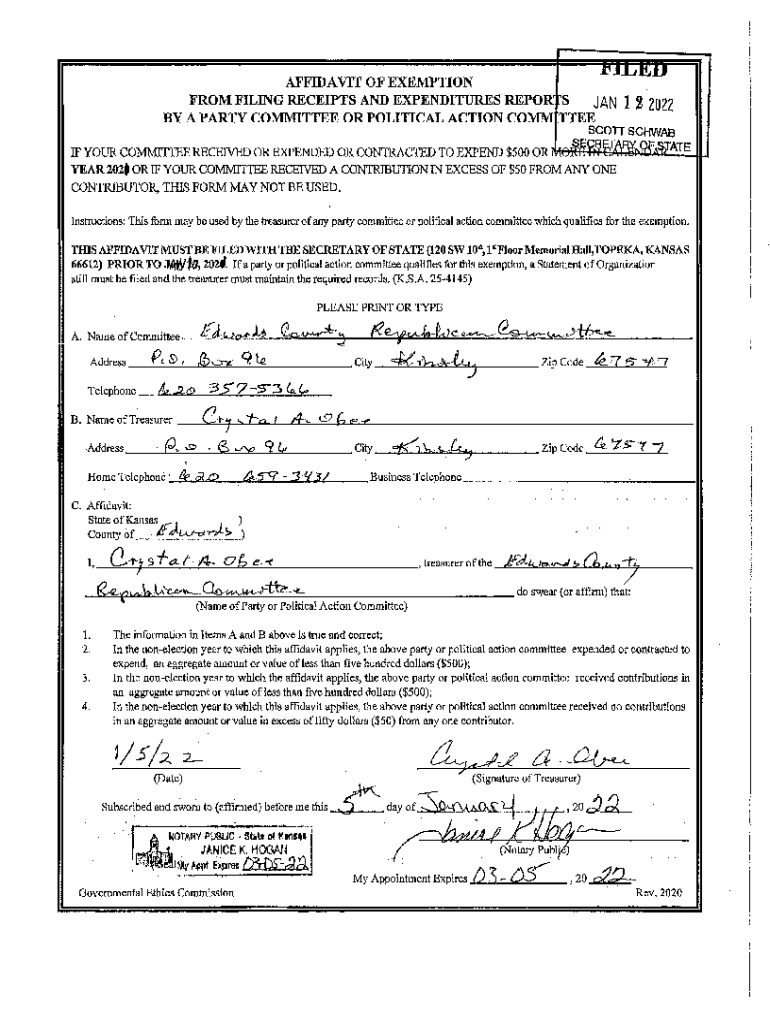 FILED
AFFIDAVIT OF EXEMPTION
FROM FILING RECEIPTS AND EXPENDITURES REPORTS
JAN 12 2022
BY A PARTY COMMITTEE OR POLITICAL ACTION COMMITTEE
SCOTT SCHWAB
SECRETARY OF STATE
IF YOUR COMMITTEE RECEIVED OR EXPENDED OR CONTRACTED TO EXPEND $500 OR MORE IN CALENDAR
YEAR 2021 OR IF YOUR COMMITTEE RECEIVED A CONTRIBUTION IN EXCESS OF $50 FROM ANY ONE
CONTRIBUTOR, THIS FORM MAY NOT BE USED.
Instructions: This form may be used by the treasurer of any party committee or political action committee which qualifies for the exemption.
THIS AFFIDAVIT MUST BE FILED WITH THE SECRETARY OF STATE (120 SW 10th, 1st Floor Memorial Hall, TOPEKA, KANSAS
66612) PRIOR TO 10, 202 . If a party or political action committee qualifies for this exemption, a Statement of Organization
still must be filed and the treasurer must maintain the required records. (K.S.A. 25-4145)
PLEASE PRINT OR TYPE
A. Name of Committee Edwards County Republican Committee
Address P.O. Box 96 City Kinsley Zip Code 67547
Telephone 620 357-5366
B. Name of Treasurer Crystal A. Ober
Address P.O. Box 96 City Kinsley Zip Code 67547
Home Telephone 620 659-3431 Business Telephone
C. Affidavit:
State of Kansas )
County of Edwards )
I, Crystal A. Ober, treasurer of the Edwards County
Republican Committee do swear (or affirm) that:
(Name of Party or Political Action Committee)
1. The information in Items A and B above is true and correct;
2. In the non-election year to which this affidavit applies, the above party or political action committee expended or contracted to
expend, an aggregate amount or value of less than five hundred dollars ($500);
3. In the non-election year to which the affidavit applies, the above party or political action committee received contributions in
an aggregate amount or value of less than five hundred dollars ($500);
4. In the non-election year to which this affidavit applies, the above party or political action committee received no contributions
in an aggregate amount or value in excess of fifty dollars ($50) from any one contributor.
1/5/22 Crystal A. Ober
(Date) (Signature of Treasurer)
Subscribed and sworn to (affirmed) before me this 5th day of January, 2022
NOTARY PUBLIC - State of Kansas
JANICE K. HOGAN
My Appt Expires 03-05-22
Janice K Hogan
(Notary Public)
My Appointment Expires 03-05, 2022
Governmental Ethics Commission Rev. 2020